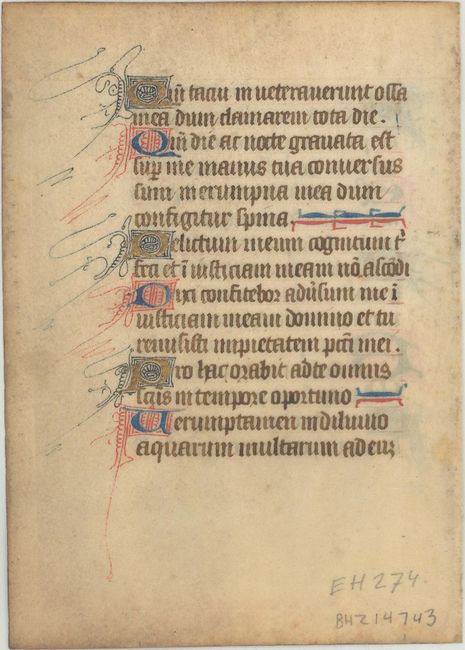 Qm̄ tacui inueterauerunt ossa
mea dum clamarem tota die .
Qm̄ die ac nocte grauata est
sup̄ me manus tua conuersus
sum in erumpna mea dum
configitur spina
Delictum meum cognitum t̄
feci et ī iusticiam meam nō ascōdi
Dixi confitebor aduersum me ī
iusticiam meam domino et tu
remisisti impietatem pcti mei .
Pro hac orabit ad te omnis
scūs in tempore oportuno
Uerumptamen in diluuio
aquarum multarum ad eū
EH 274.
BHZ14743